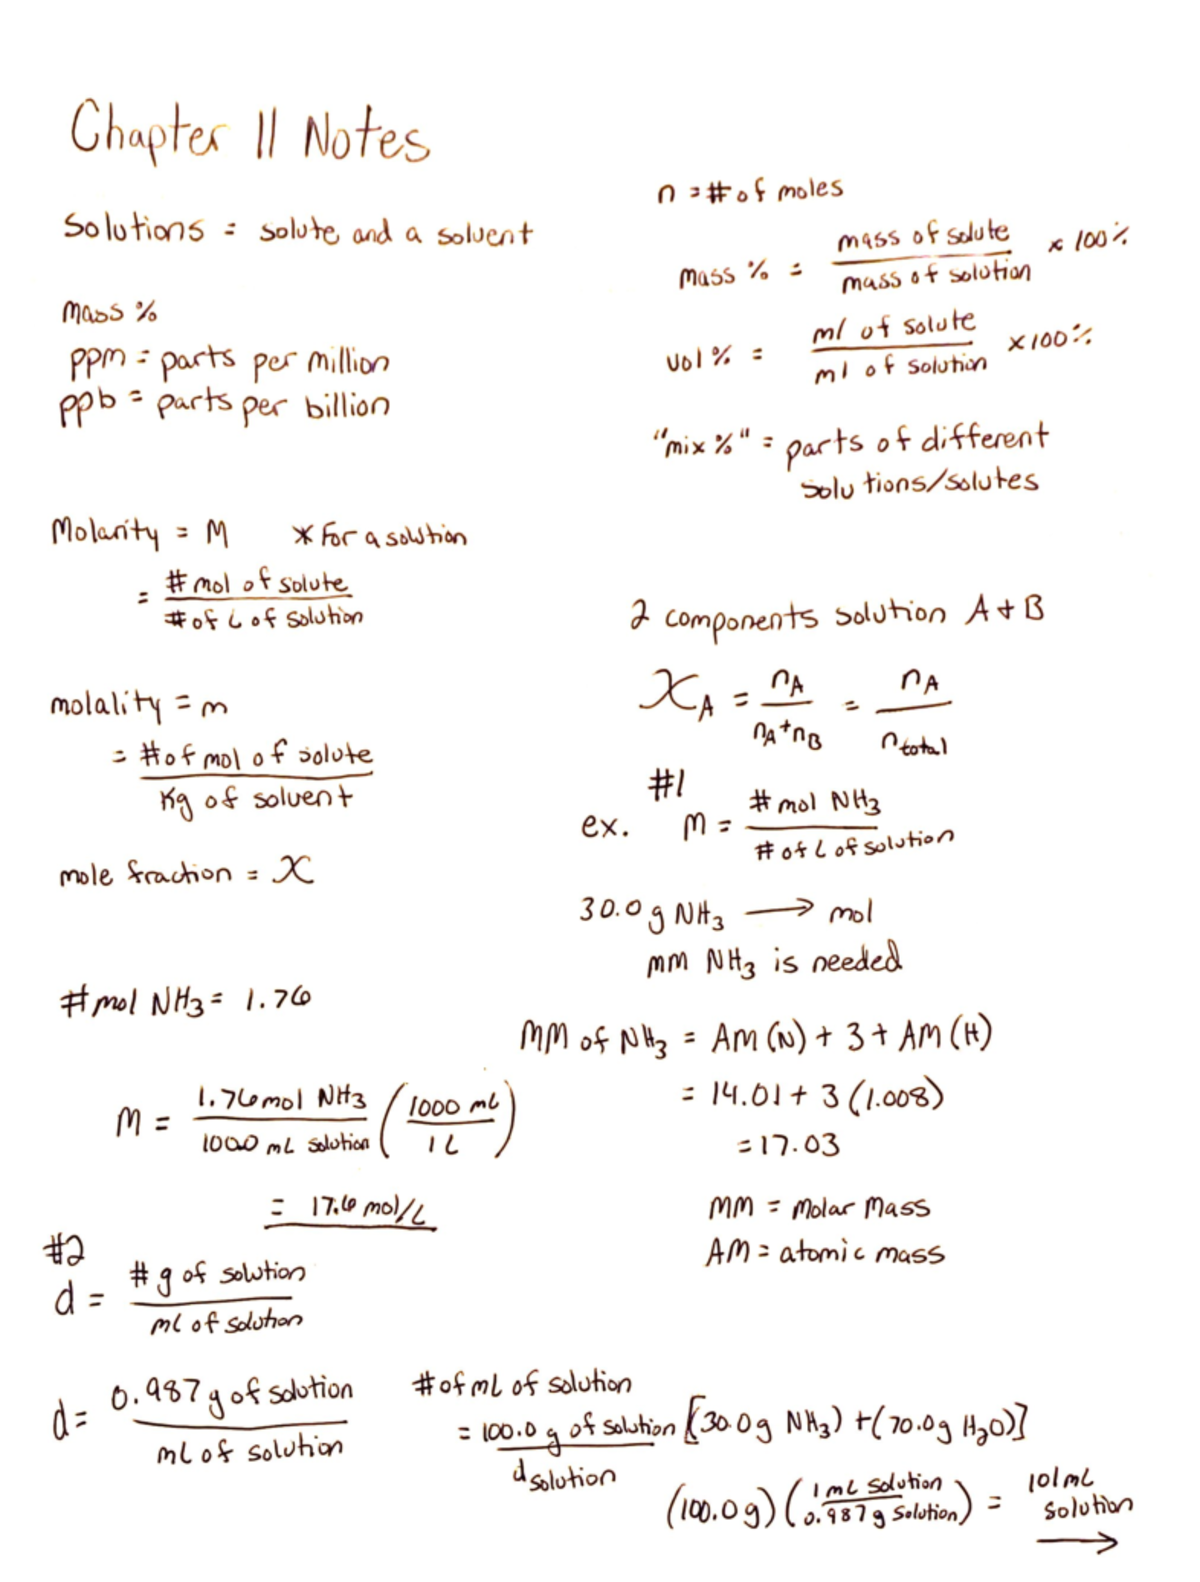 Chapter 11 Notes
Solutions = solute and a solvent
mass %
ppm = parts per million
ppb = parts per billion
n = # of moles
mass % = mass of solute / mass of solution × 100%
vol % = ml of solute / ml of solution × 100%
"mix %" = parts of different
solutions/solutes
Molarity = M * For a solution
= # mol of solute / # of L of solution
molality = m
= # of mol of solute / Kg of solvent
mole fraction = X
2 components solution A + B
X_A = n_A / n_A + n_B = n_A / n_total
#1
ex. M = # mol NH3 / # of L of solution
30.0 g NH3 → mol
mm NH3 is needed
# mol NH3 = 1.76
MM of NH3 = AM (N) + 3 + AM (H)
= 14.01 + 3 (1.008)
= 17.03
MM = Molar Mass
AM = atomic mass
M = 1.76 mol NH3 / 100.0 mL solution (1000 mL / 1 L)
= 17.6 mol/L
#2
d = # g of solution / mL of solution
d = 0.987 g of solution / mL of solution
# of mL of solution
= 100.0 g of solution / d solution [30.0g NH3) + (70.0g H2O)]
(100.0g) (1 mL solution / 0.987 g solution) = 101 mL
solution
→